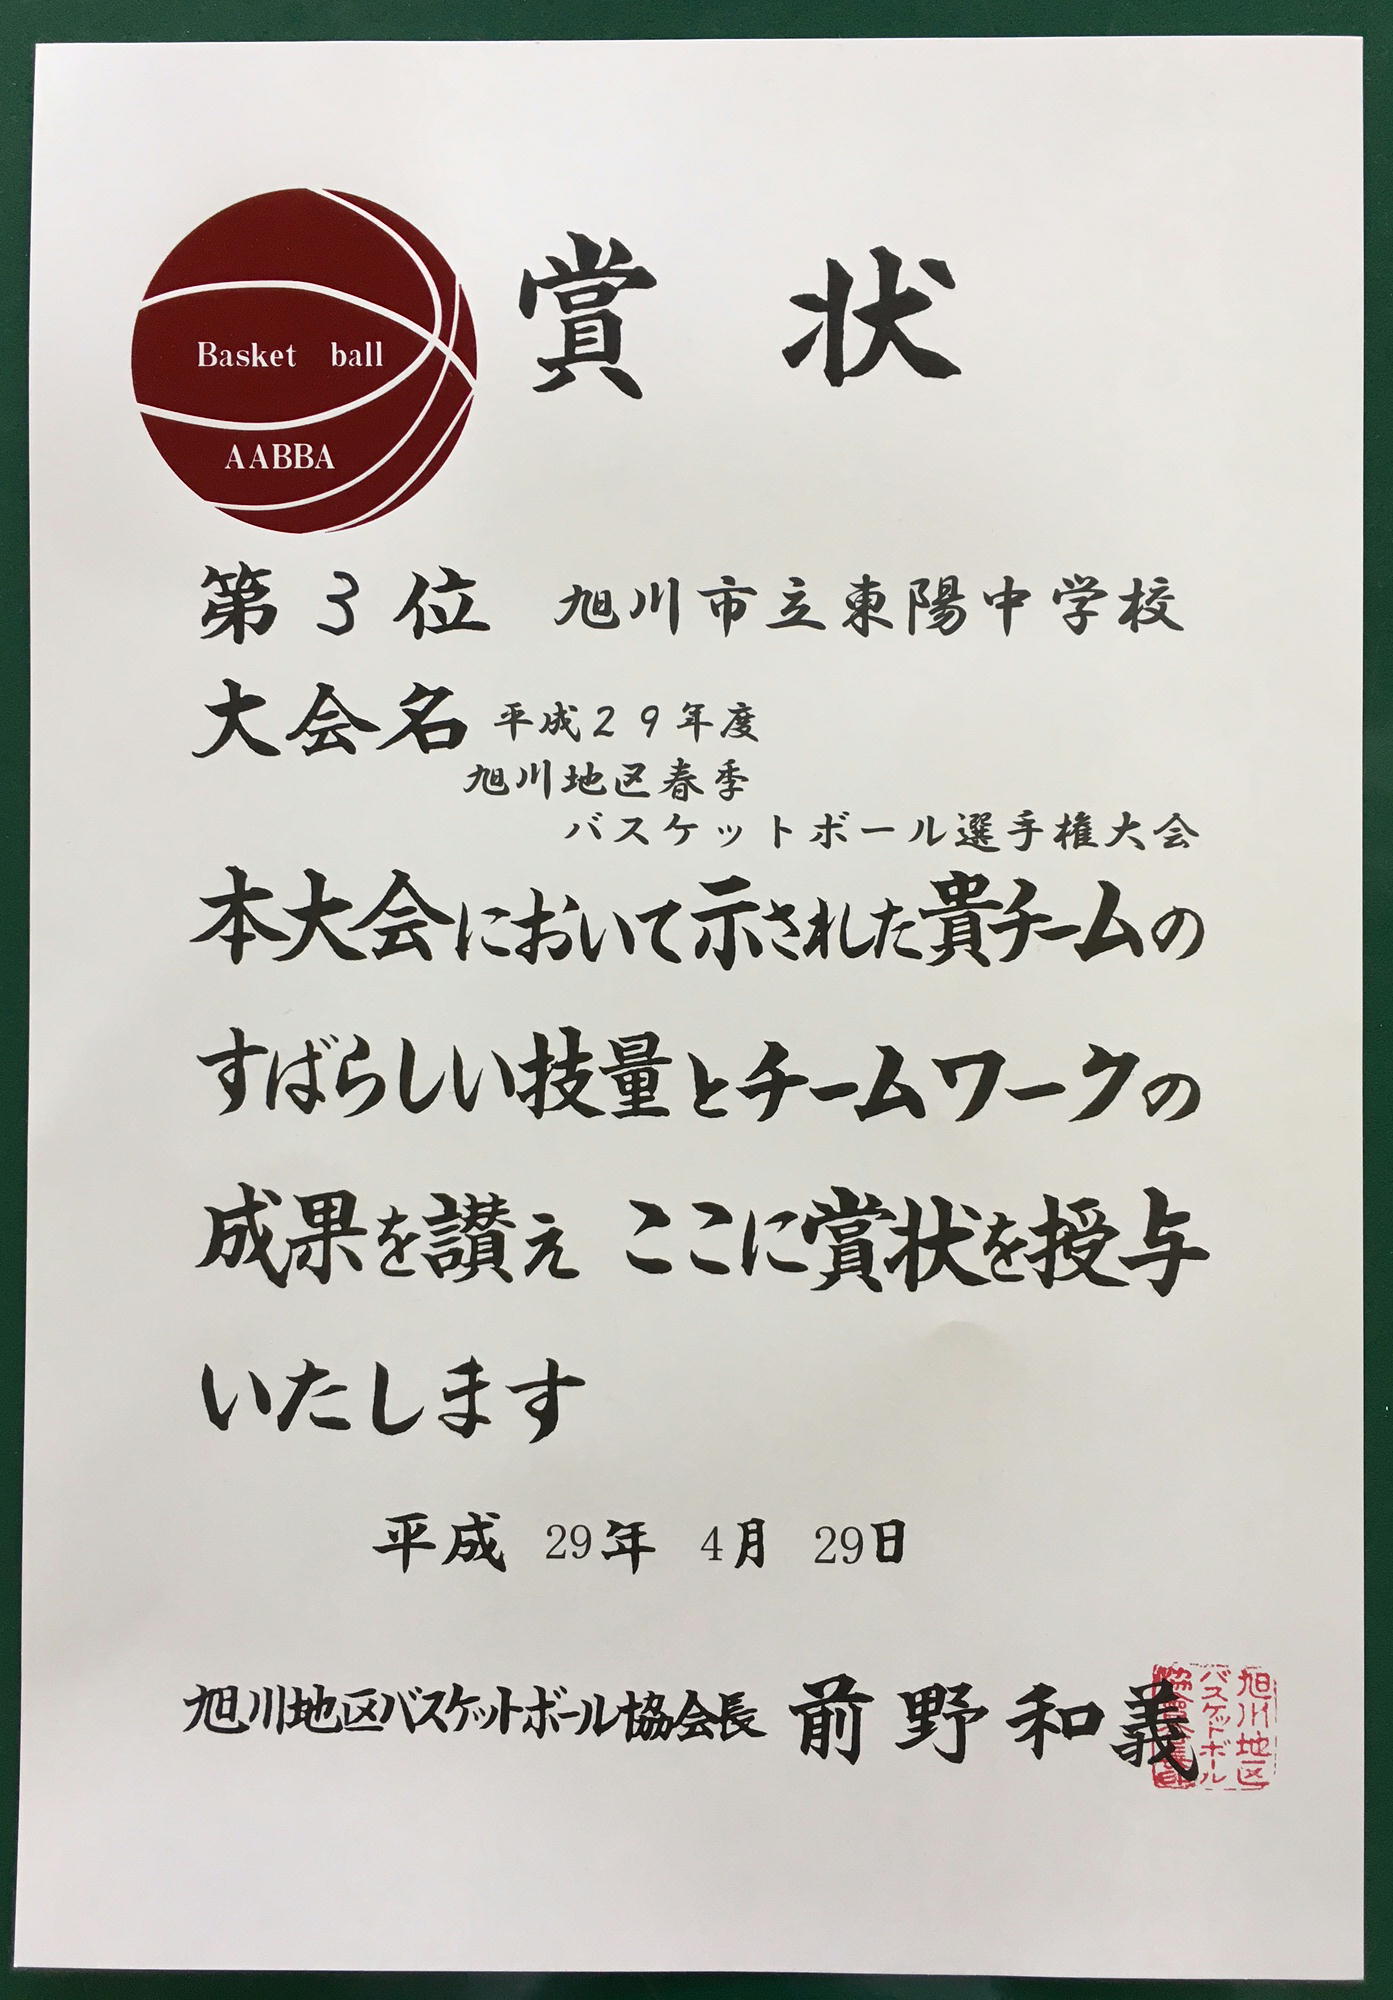 賞 状
Basket ball
AABBA
第 3 位 旭川市立東陽中学校
大会名 平成29年度
旭川地区春季
バスケットボール選手権大会
本大会において示された貴チームの
すばらしい技量とチームワークの
成果を讃え ここに賞状を授与
いたします
平成 29年 4月 29日
旭川地区バスケットボール協会長 前野和義
旭川地区
バスケットボール